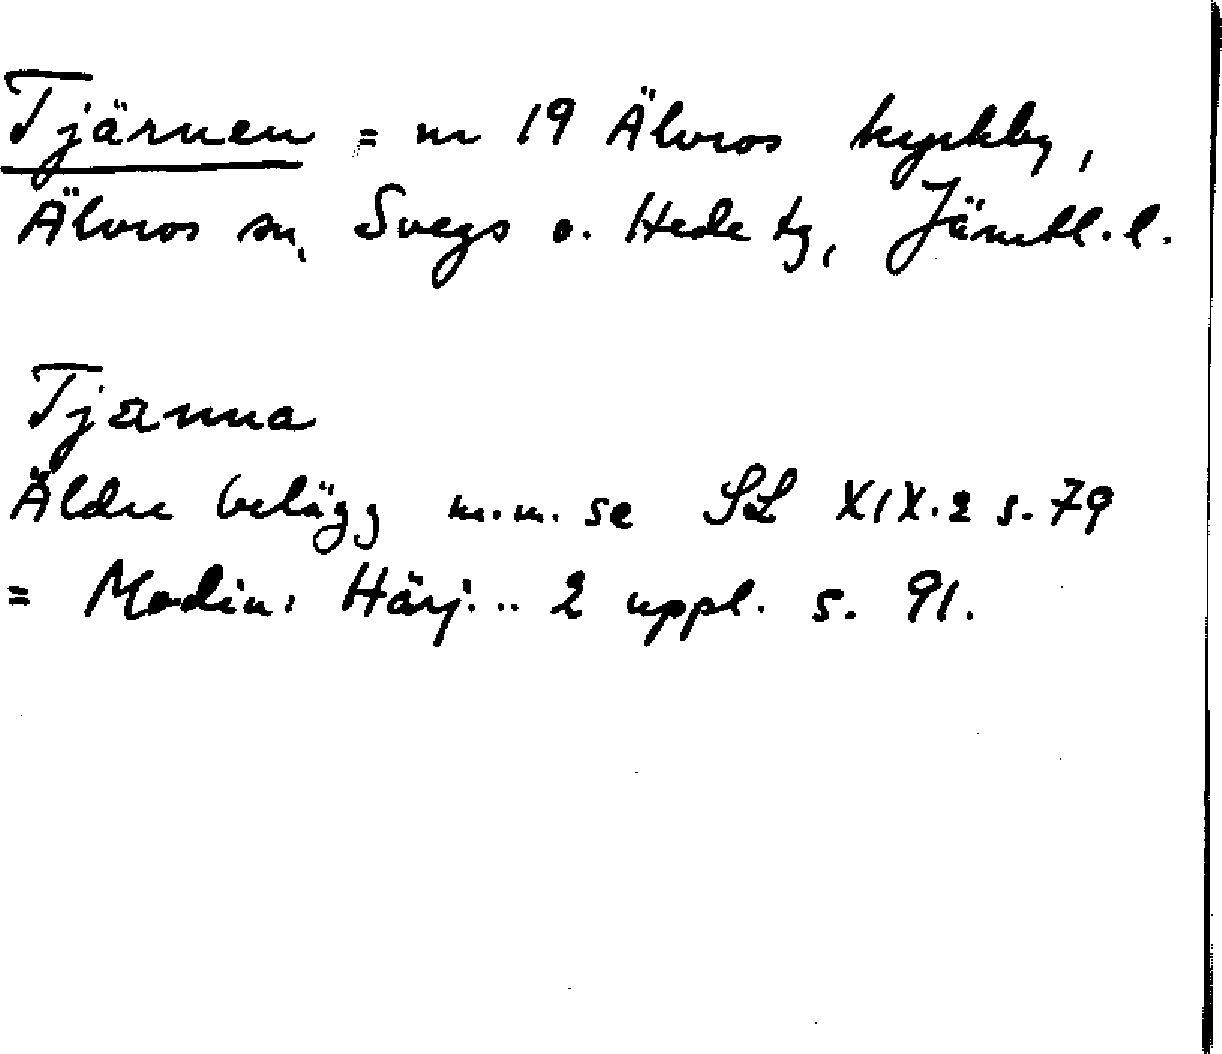 Tjärnen = nr 19 Älvros kyrkby,
Älvros sn, Svegs o. Hede tg, Jämtl. l.
Tjärnna
Äldre belägg m.m. se SL XIX.2 s. 79
= Modin: Härj... 2 uppl. s. 91.